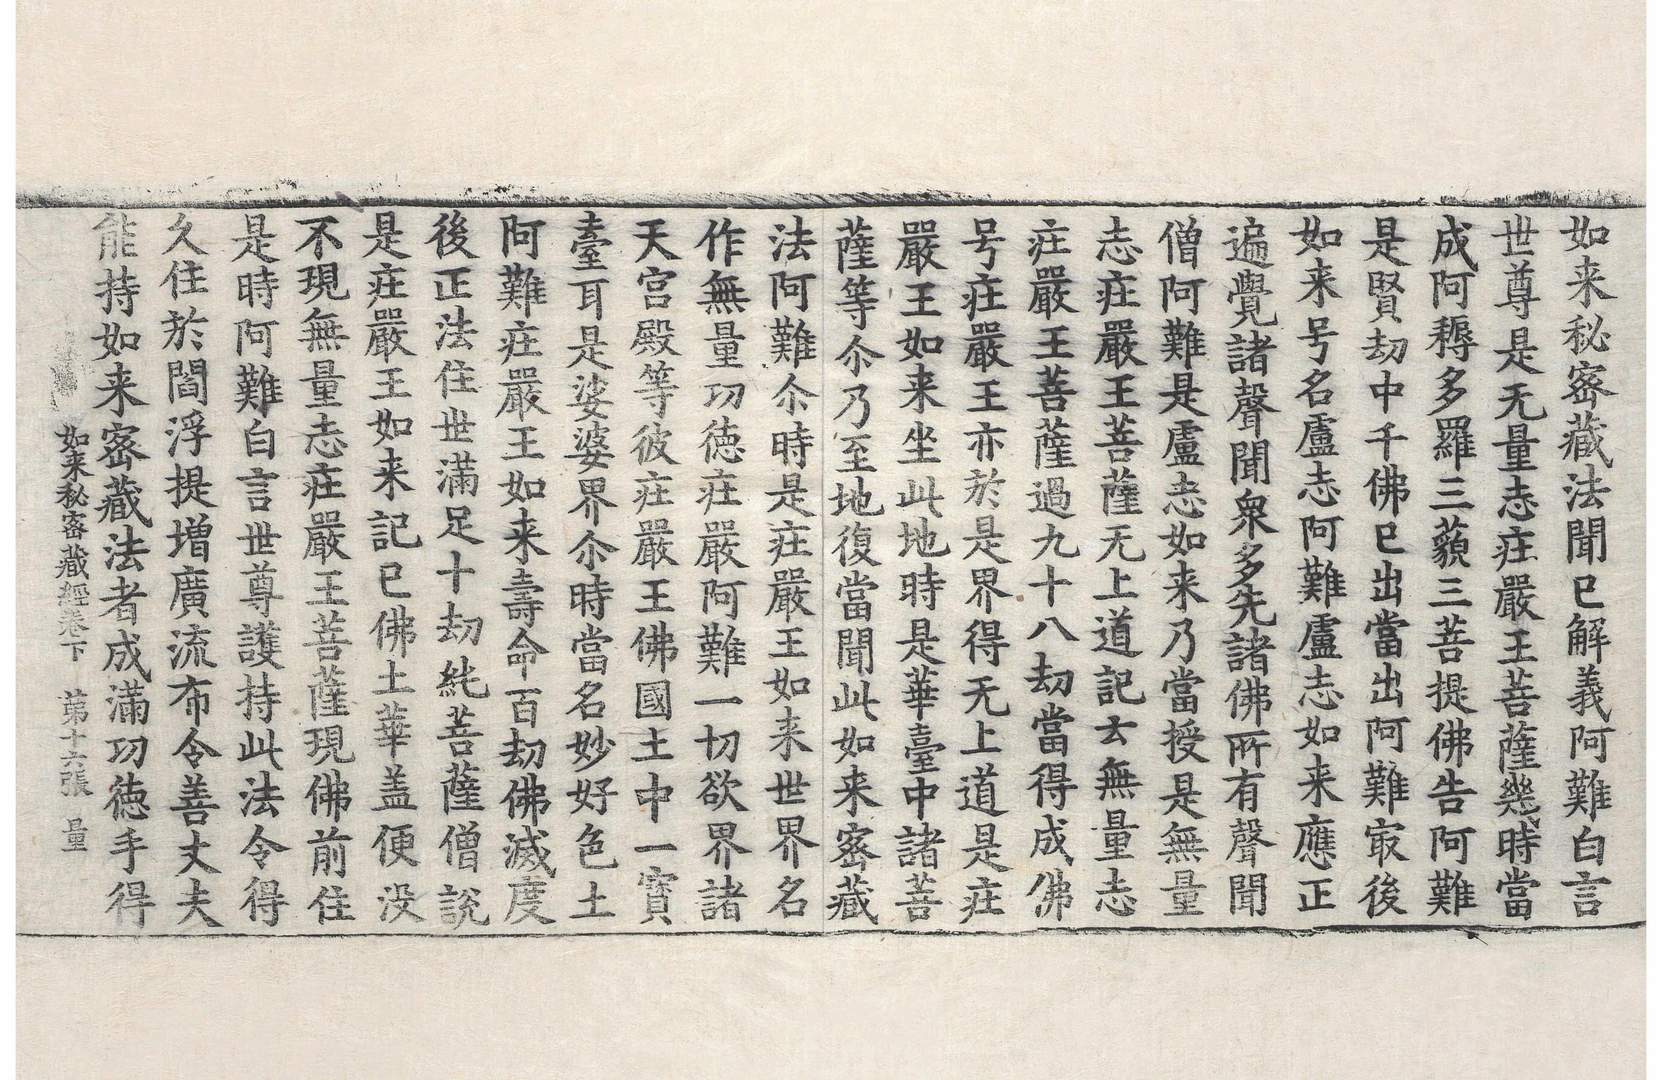 如来秘密藏法聞已解義阿難白言
世尊是无量志㽵嚴王菩薩幾時當
成阿耨多羅三藐三菩提佛告阿難
是賢劫中千佛已出當出阿難冣後
如来号名盧志阿難盧志如来應正
遍覺諸聲聞衆多先諸佛所有聲聞
僧阿難是盧志如来乃當授是無量
志㽵嚴王菩薩无上道記去無量志
㽵嚴王菩薩過九十八劫當得成佛
号㽵嚴王亦於是界得无上道是㽵
嚴王如来坐此地時是華臺中諸菩
薩等尒乃至地復當聞此如来密藏
法阿難尒時是㽵嚴王如来世界名
作無量功徳㽵嚴阿難一切欲界諸
天宫殿等彼㽵嚴王佛國土中一寳
臺耳是娑婆界尒時當名妙好色土
阿難㽵嚴王如来壽命百劫佛滅度
後正法住世滿足十劫純菩薩僧說
是㽵嚴王如来記已佛土華盖便没
不現無量志㽵嚴王菩薩現佛前住
是時阿難白言世尊護持此法令得
久住於閻浮提增廣流布令善丈夫
能持如来密藏法者成滿功徳手得
如来秘密藏經卷下 第十六張 量